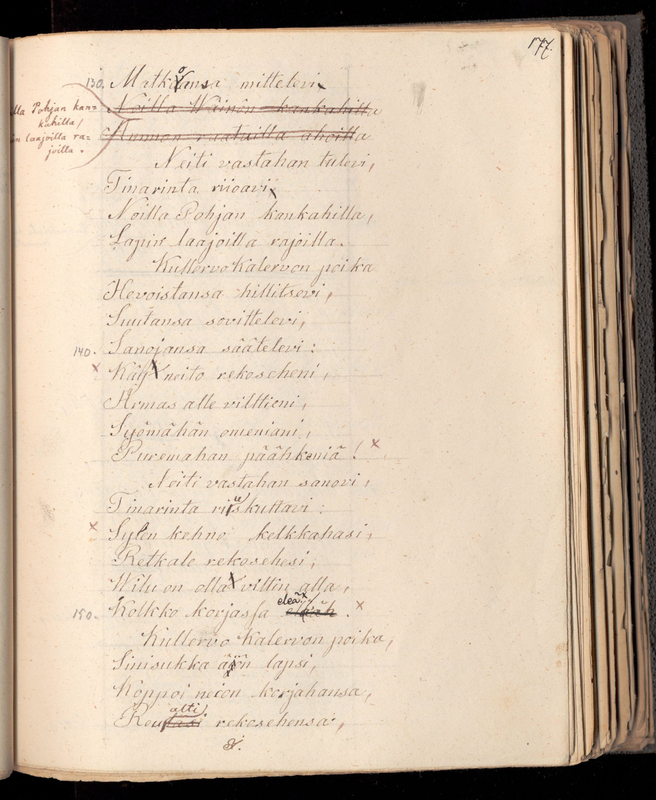 177.
130. Matkoansa mittelevi
Noilla Wäinön kankahilla
Ammon raatuilla ahoilla
lla Pohjan kan-
kahilla,
in laajoilla ra-
joilla.
Neiti vastahan tulevi,
Tinarinta riioavi
Noilla Pohjan kankahilla,
Lapin laajoilla rajoilla.
Kullervo Kalervon poika
Hevoistansa hillitsevi,
Suutansa sovittelevi,
140. Sanojansa säätelevi:
x Käy neito rekoseheni,
Armas alle vilttieni,
Syömähän omeniani,
Puremahan päähkeniä! x
Neiti vastahan sanovi,
Tinarinta riuskuttavi:
x Sylen kehno kelkkahasi,
Retkale rekosehesi,
Wilu on olla viltin alla,
150. Kolkko korjassa eleä. x
Kullervo Kalervon poika,
Sinisukka äijön lapsi,
Koppoi neion korjahansa,
Reualti rekosehensa,